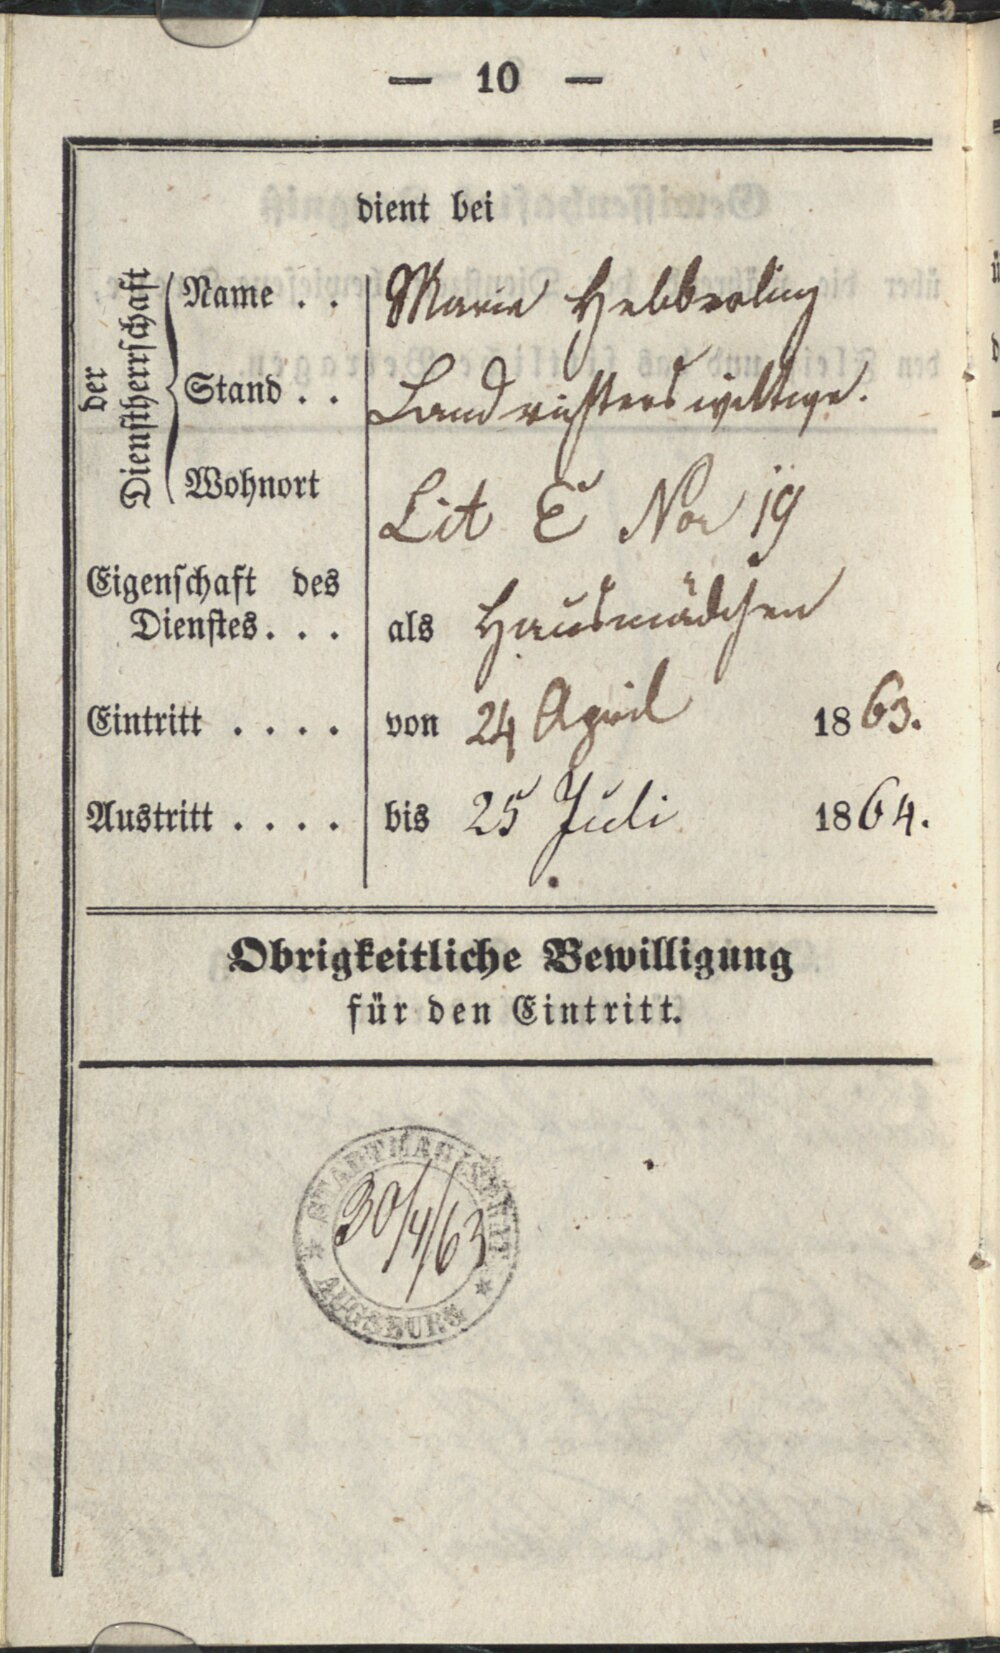 — 10 —
dient bei
der
Dienstherrschaft
Name . . Marie Hebberling
Stand . . Landrichters wittwe.
Wohnort Lit E No 19
Eigenschaft des
Dienstes. . . als Hausmädchen
Eintritt . . . . von 24 April 1863.
Austritt . . . . bis 25 Juli 1864.
Obrigkeitliche Bewilligung
für den Eintritt.
30/4/63
AUGSBURG